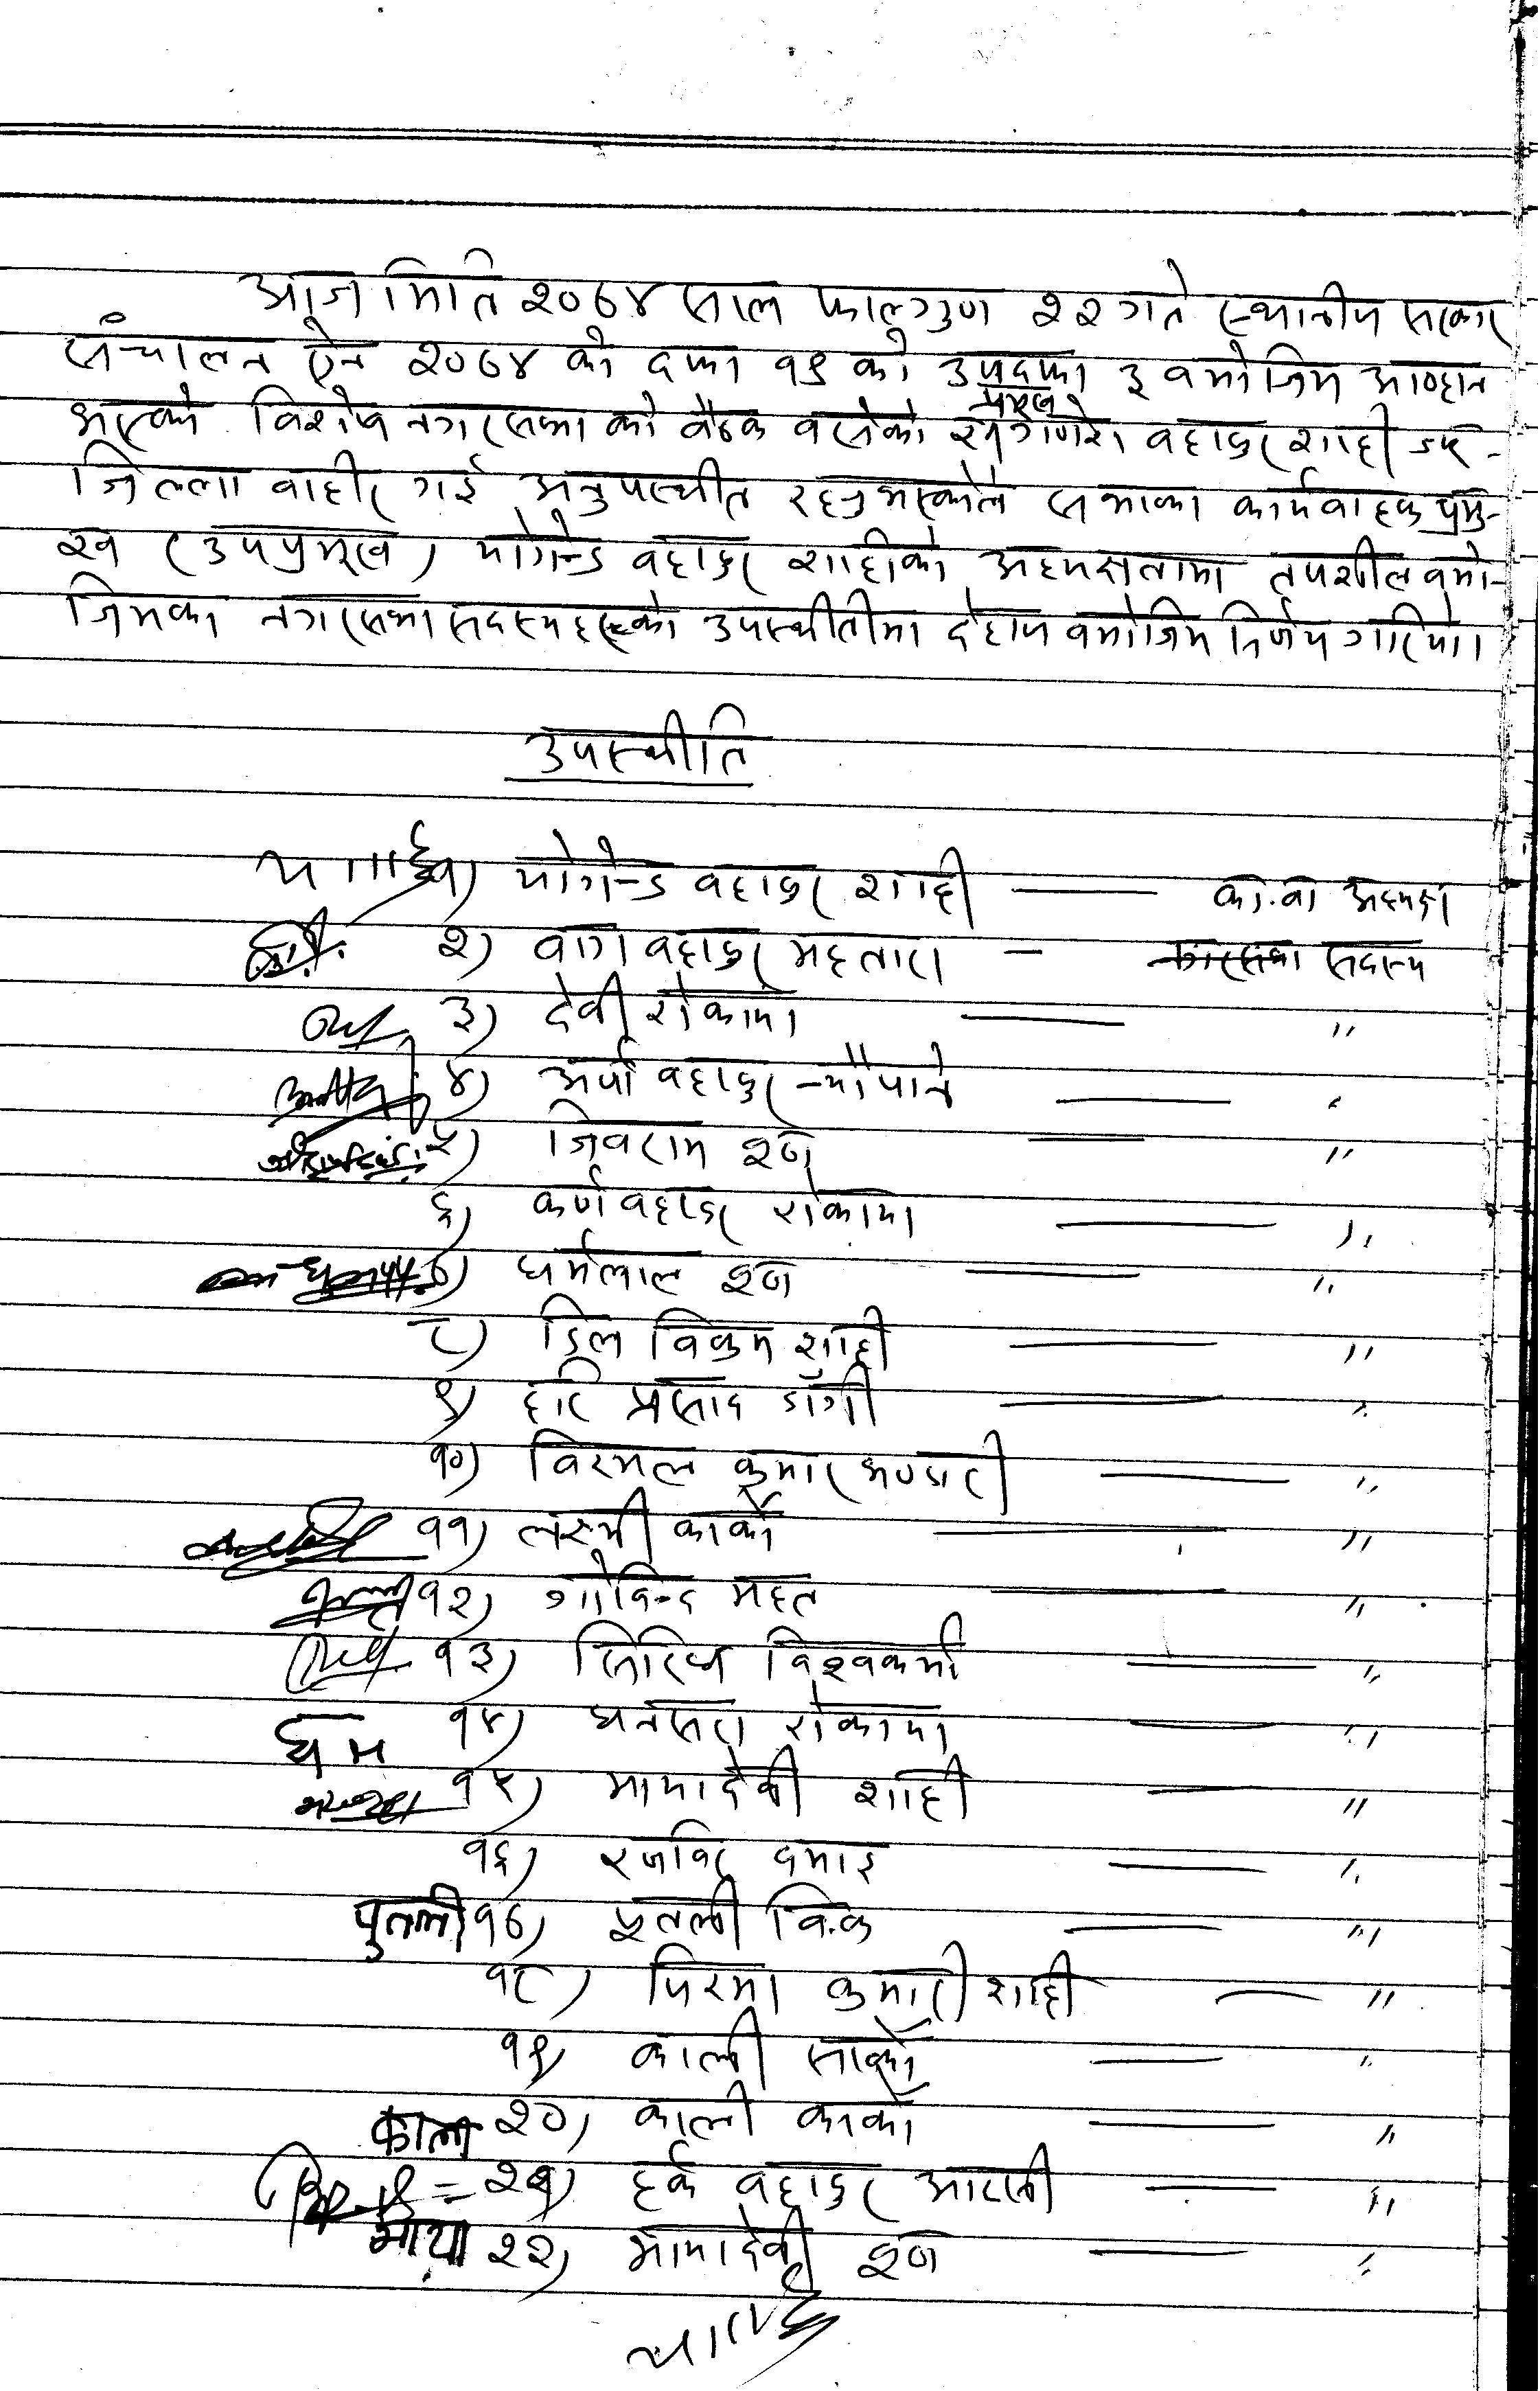 आज मिति २०७४ साल फाल्गुण २२ गते स्थानीय सरकार
संचालन ऐन २०७४ को दफा १९ को उपदफा ३ वमोजिम आव्हान
भएको विशेष नगरसभा को बैठक वसेको प्रमुख गणेश वहादुर शाही
जिल्ला वाहीर गई अनुपस्थीत रहनु भएकोले सभाका कार्यवाहक प्रमु-
ख (उपप्रमूख) योगेन्द्र वहादुर शाहीको अध्यक्षतामा तपशील वमो-
जिमका नगरसभा सदस्यहरुको उपस्थीतीमा देहाय वमोजिम निर्णय गरियो।
उपस्थीति
१) योगेन्द्र वहादुर शाही — का.वा अध्यक्ष
२) वाग वहादुर महतारा — नगरसभा सदस्य
३) देवी रोकाया — "
४) अर्पा वहादुर न्यौपाने — "
५) जिवराम रण — "
६) कर्ण वहादुर रोकाया — "
७) धर्मलाल रण — "
८) डिल विक्रम शाही — "
९) हरि प्रसाद डाँगी — "
१०) विरमल कुमार भण्डारी — "
११) लक्ष्मी कार्की — "
१२) गोविन्द महत — "
१३) सिरिध विश्वकर्मा — "
धन १४) धनसरा रोकाया — "
१५) मायादेवी शाही — "
१६) रणविर दमाइ — "
पुतली १७) पुतली वि.क — "
१८) पिरमा कुमारी शाही — "
१९) काली सार्की — "
काली २०) काली कार्की — "
२१) हर्क वहादुर आराली — "
माया २२) मायादेवी रण — "